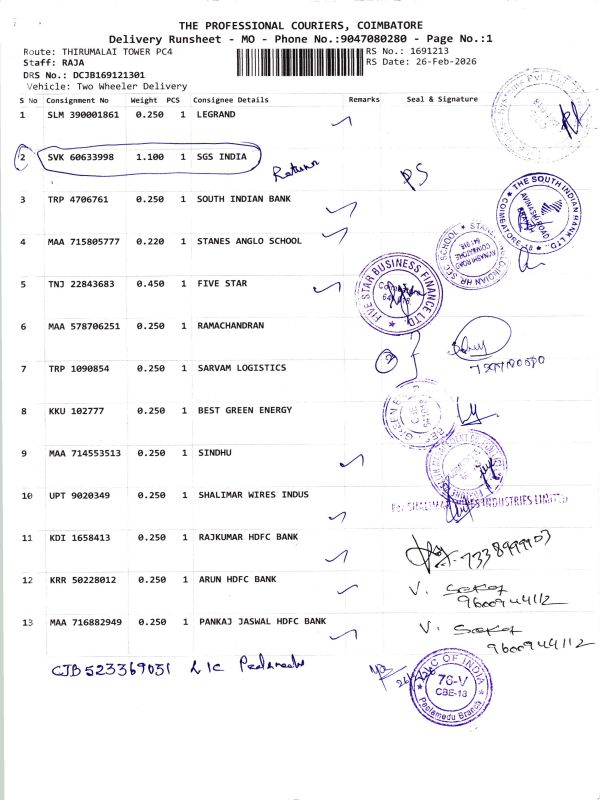 THE PROFESSIONAL COURIERS, COIMBATORE
Delivery Runsheet - MO - Phone No.:9047080280 - Page No.:1
Route: THIRUMALAI TOWER PC4
RS No.: 1691213
Staff: RAJA
RS Date: 26-Feb-2026
DRS No.: DCJB169121301
Vehicle: Two Wheeler Delivery
S No Consignment No Weight PCS Consignee Details Remarks Seal & Signature
1 SLM 390001861 0.250 1 LEGRAND
2 SVK 60633998 1.100 1 SGS INDIA Return PS
3 TRP 4706761 0.250 1 SOUTH INDIAN BANK
THE SOUTH INDIAN BANK LTD.
AVINASHI ROAD
BRANCH
COIMBATORE-18
4 MAA 715805777 0.220 1 STANES ANGLO SCHOOL
AVINASHI ROAD
COIMBATORE
641 018
5 TNJ 22843683 0.450 1 FIVE STAR
FIVE STAR BUSINESS FINANCE LTD
6 MAA 578706251 0.250 1 RAMACHANDRAN
2
7 TRP 1090854 0.250 1 SARVAM LOGISTICS
8 KKU 102777 0.250 1 BEST GREEN ENERGY
9 MAA 714553513 0.250 1 SINDHU
10 UPT 9020349 0.250 1 SHALIMAR WIRES INDUS
For SHALIMAR WIRES INDUSTRIES LIMITED
11 KDI 1658413 0.250 1 RAJKUMAR HDFC BANK 7338999903
12 KRR 50228012 0.250 1 ARUN HDFC BANK V.
9600944112
13 MAA 716882949 0.250 1 PANKAJ JASWAL HDFC BANK V.
9600944112
CJB523369051 LIC Peelamedu
LIC OF INDIA
76-V
CBE-18
Peelamedu Branch